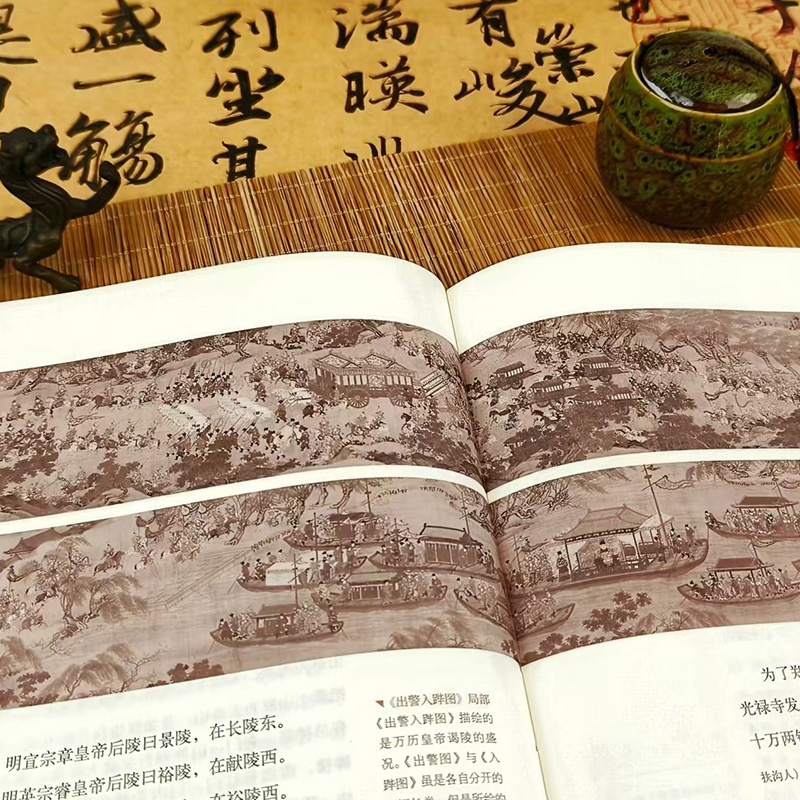 有崇山峻
湍暎
列坐其
盛一觴
是
明宣宗章皇帝后陵曰景陵，在长陵东。
明英宗睿皇帝后陵曰裕陵，在献陵西。
在裕陵西。
《出警入跸图》局部
《出警入跸图》描绘的
是万历皇帝谒陵的盛
况。《出警图》与《入
跸图》虽是各自分开的
长卷，但是所绘的
为了
光禄寺发
十万两
扶沟人）